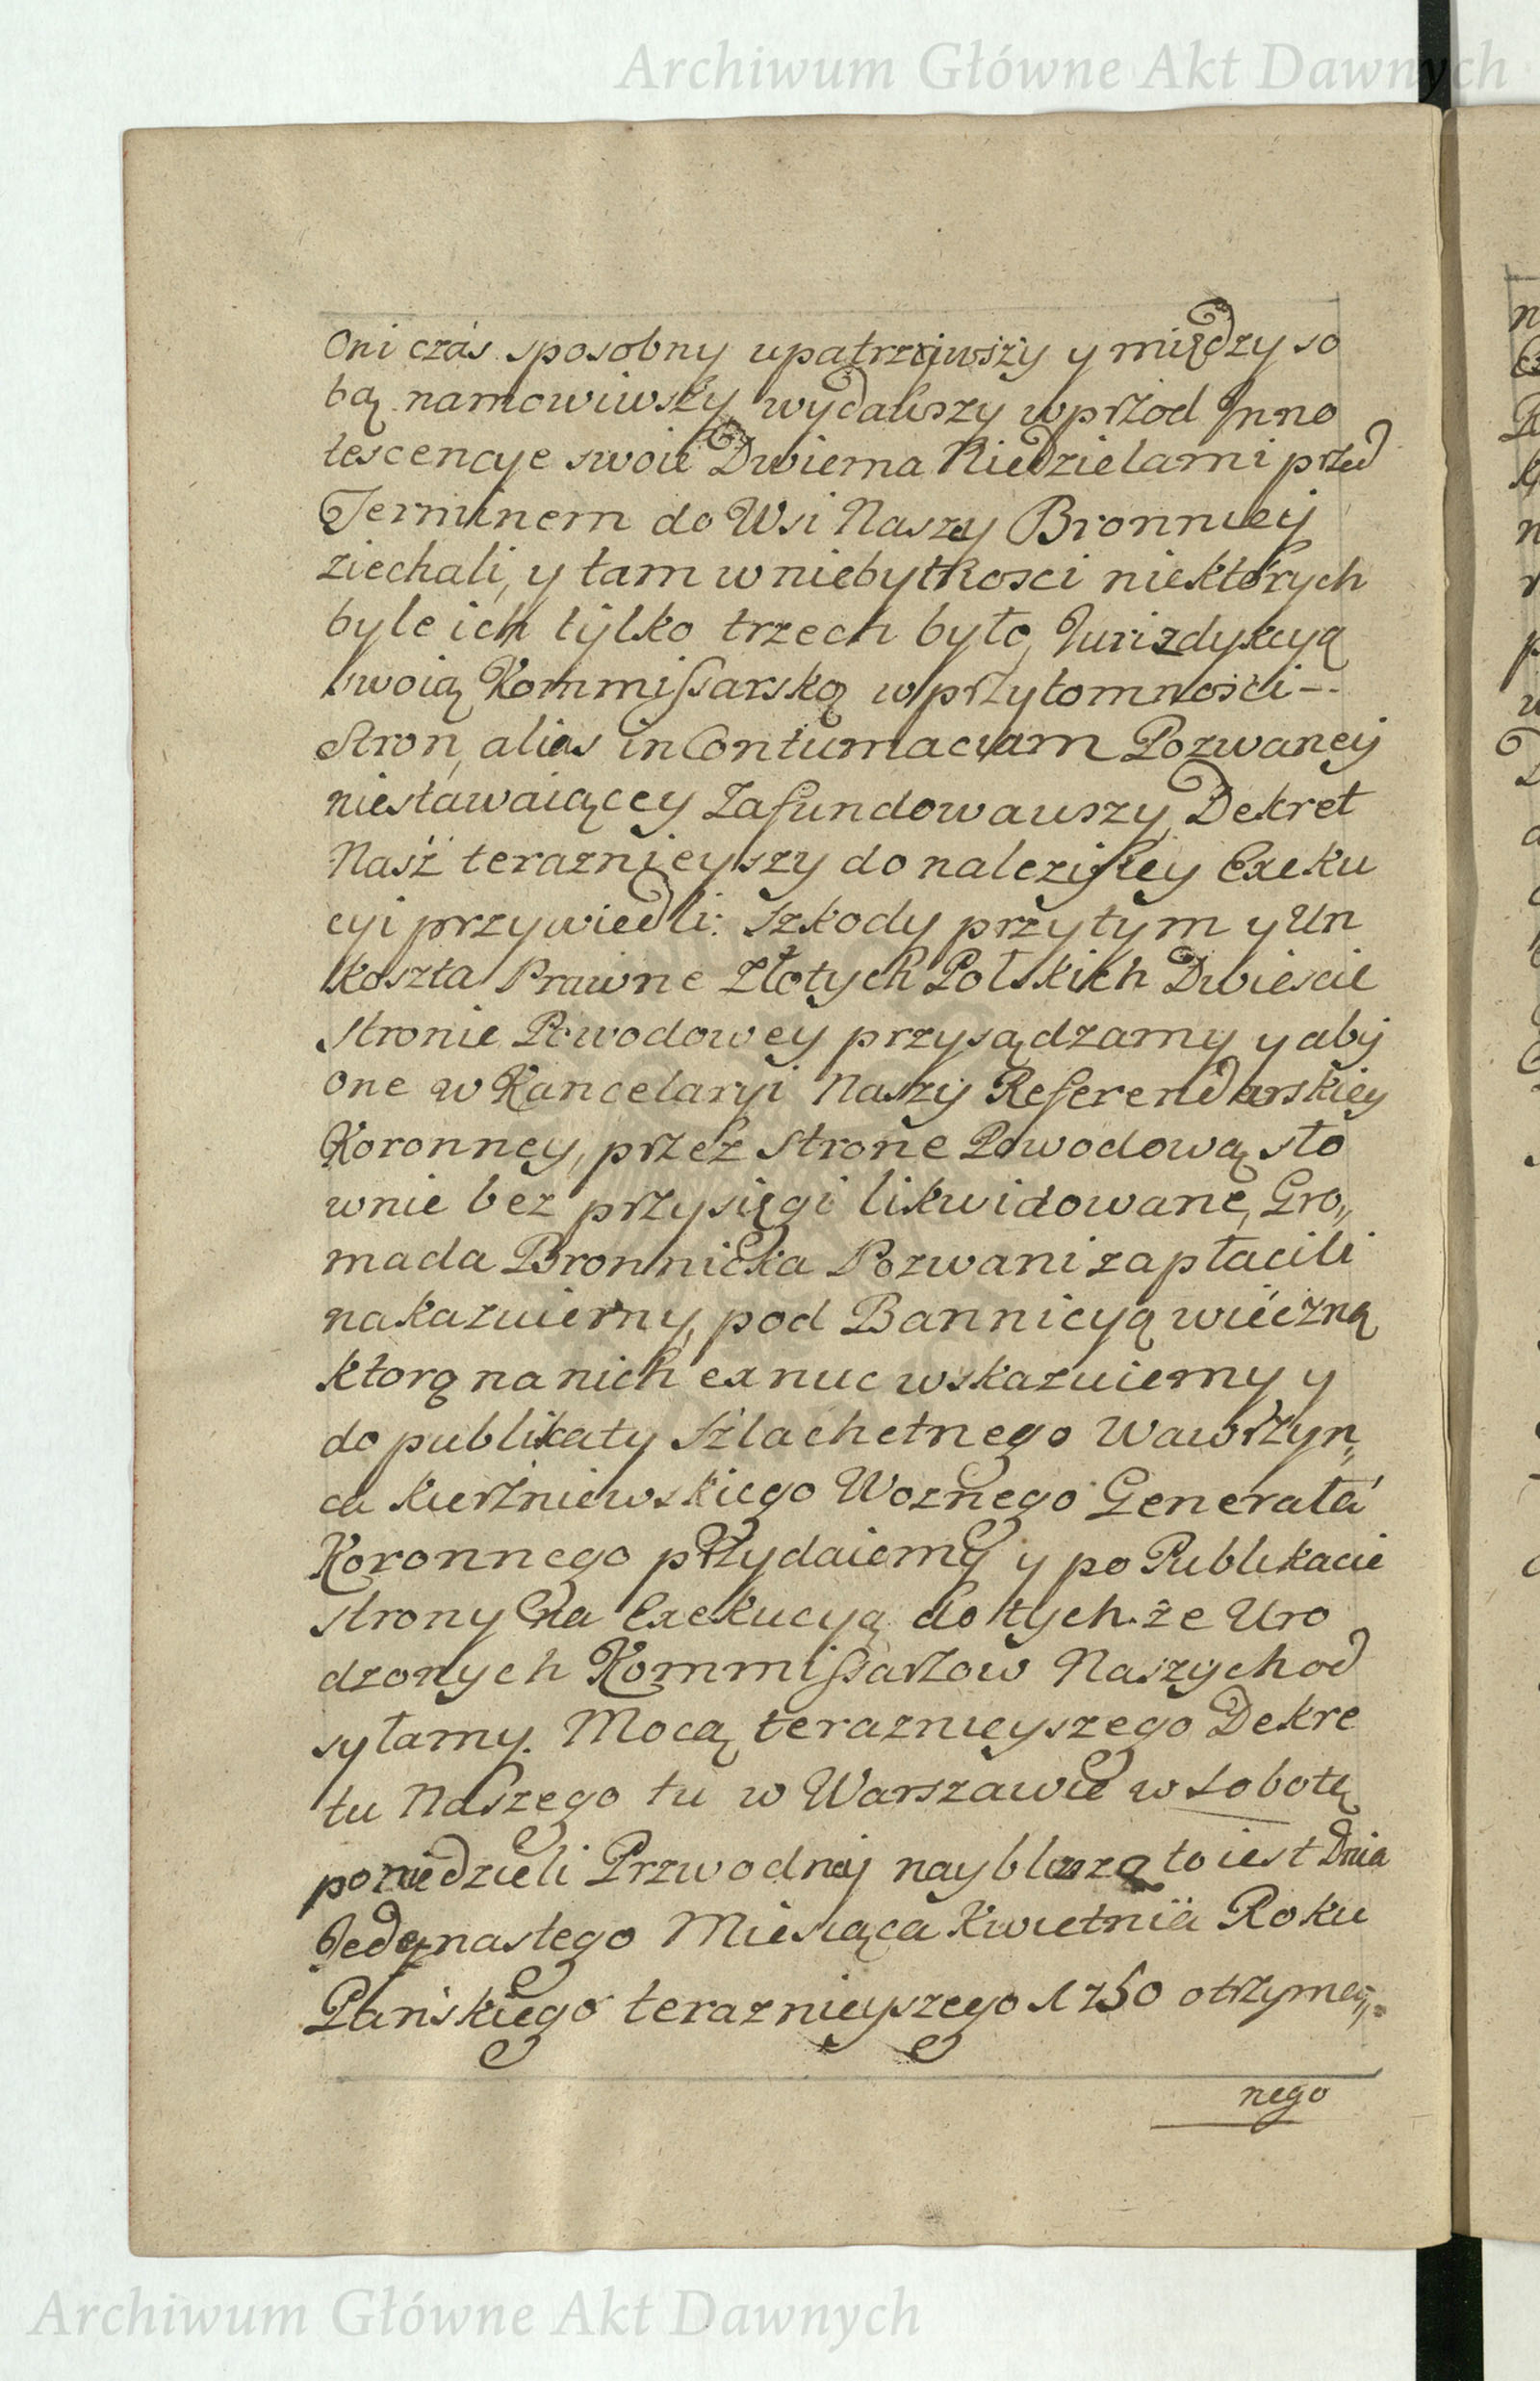 Archiwum Główne Akt Dawnych
Oni czás sposobny upatrzywszy y między so
bą namowiwszy, wydawszy wprzod Inno
tescencye swoie Dwiema Niedzielami przed
Terminem do Wsi Naszey Bronniey
ziechali, y tam w niebytkosci niektorych
byle ich tylko trzech było, Jurizdykcyą
swoią Kommissarską w przytomności --
Stron, alias in Contumaciam Pozwaney
niestawaiącey Zafundowawszy, Dekret
Nasz teraznieyszy do nalezistey Exeku
cyi przywiedli: Szkody przytym y Un
koszta Prawne Złotych Polskich Dwiescie
Stronie Powodowey przysądzamy y aby
one w Kancelaryi Naszy Referendarskiey
Koronney, przez Strone Powodową sło
wnie bez przysięgi likwidowane, Gro„
mada Bronnicka Pozwani zapłacili
nakazuiemy, pod Bannicyą wieczną
ktorą na nich ex nuc wskazuiemy y
do publikaty Szlachetnego Wawrzyn„
ca Kierzniewskiego Woznego Generała
Koronnego przydaiemy y po Publikacie
strony na Exekucyą do tych że Uro
dzonych Kommissarzow Naszych od
syłamy. Mocą teraznieyszego Dekre
tu Naszego tu w Warszawie w Sobotę
po niedzieli Przwodney nayblizszą to iest Dnia
Jedynastego Miesiąca Kwietnia Roku
Pańskiego teraznieyszego 1750 otrzyma„
nego
Archiwum Główne Akt Dawnych